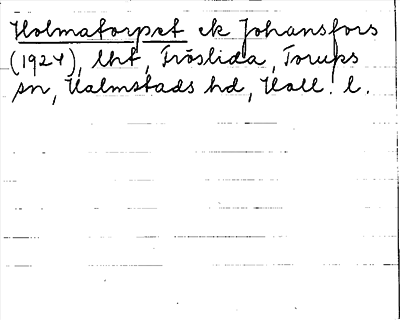 Holmatorpet ek Johansfors
(1924), lht, Fröslida, Torups
sn, Halmstads hd, Hall. l.